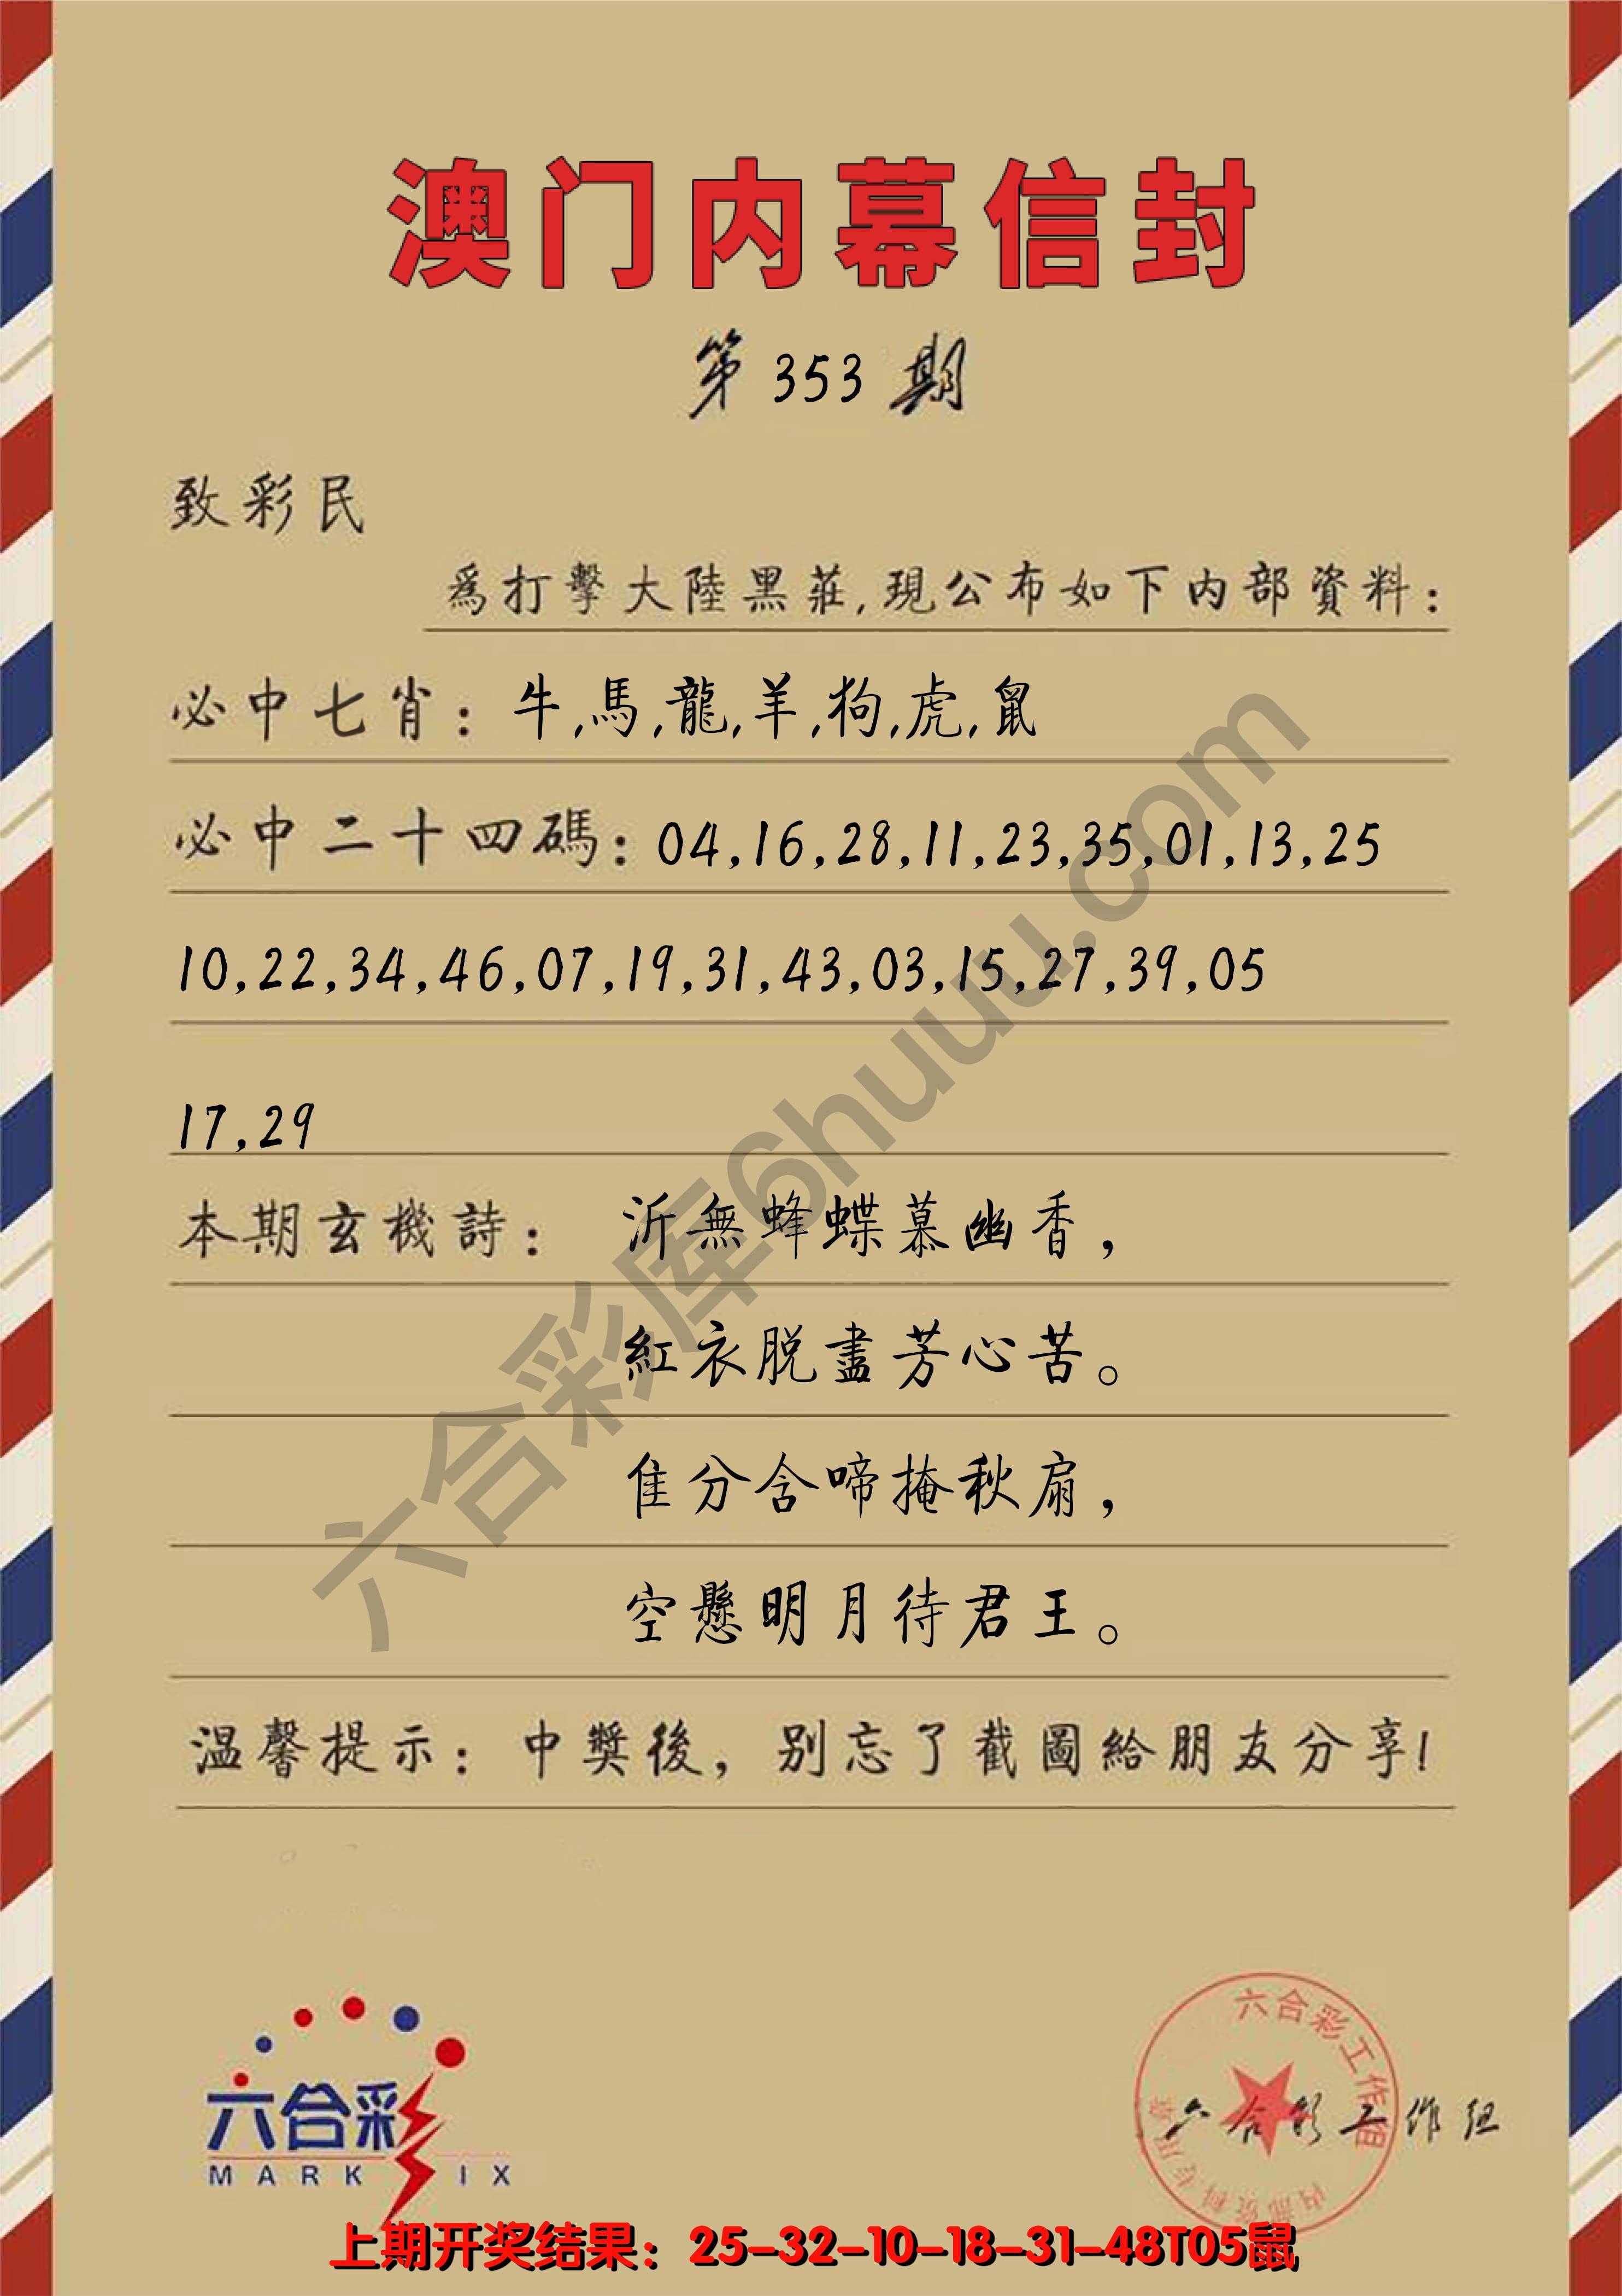 澳门内幕信封
第 353 期
致彩民
爲打擊大陸黑莊,現公布如下内部資料:
必中七肖: 牛,馬,龍,羊,狗,虎,鼠
必中二十四碼: 04,16,28,11,23,35,01,13,25
10,22,34,46,07,19,31,43,03,15,27,39,05
17,29
本期玄機詩: 沂無蜂蝶慕幽香,
紅衣脱盡芳心苦。
隹分含啼掩秋扇,
空懸明月待君王。
温馨提示: 中獎後, 别忘了截圖給朋友分享!
六合彩库6huuu.com
六合彩
MARK IX
六合彩工作组
六合彩工作组
上期开奖结果: 25-32-10-18-31-48T05鼠